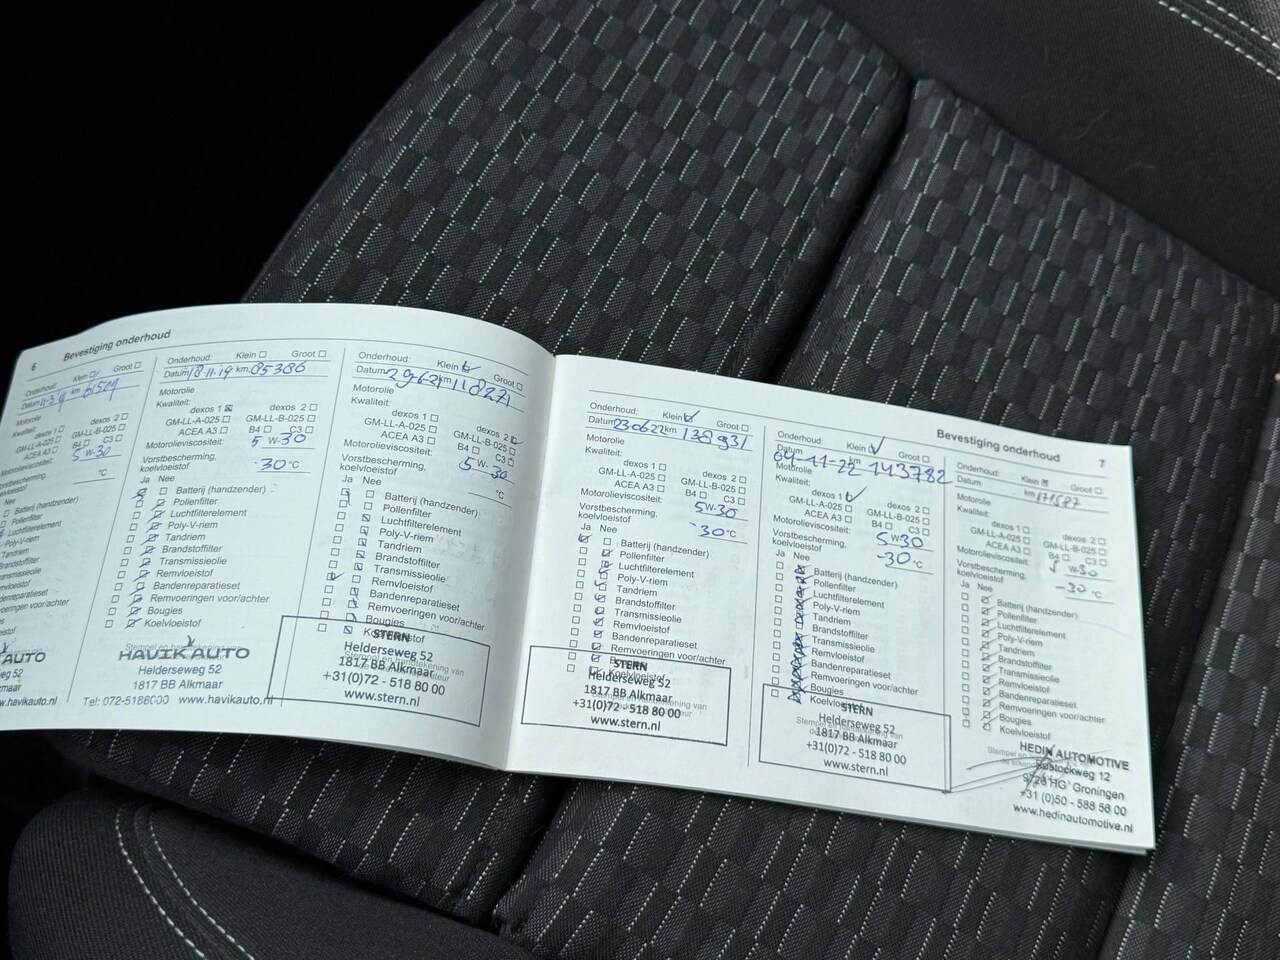 6
Bevestiging onderhoud
Onderhoud: Klein Groot
Datum km
Motorolie
Kwaliteit:
dexos 1 dexos 2
GM-LL-A-025 GM-LL-B-025
ACEA A3 B4 C3
Motorolieviscositeit: 5 W-30
°C
Ja Nee
Batterij (handzender)
Pollenfilter
Luchtfilterelement
Poly-V-riem
Tandriem
Brandstoffilter
Transmissieolie
Remvloeistof
Bandenreparatieset
Remvoeringen voor/achter
Bougies
Koelvloeistof
HAVIK AUTO
www.havikauto.nl
Onderhoud: Klein Groot
Datum 18-11-19 km 85386
Motorolie
Kwaliteit:
dexos 1 dexos 2
GM-LL-A-025 GM-LL-B-025
ACEA A3 B4 C3
Motorolieviscositeit: 5 W-30
Vorstbescherming,
koelvloeistof -30 °C
Ja Nee
Batterij (handzender)
Pollenfilter
Luchtfilterelement
Poly-V-riem
Tandriem
Brandstoffilter
Transmissieolie
Remvloeistof
Bandenreparatieset
Remvoeringen voor/achter
Bougies
Koelvloeistof
HAVIK AUTO
Helderseweg 52
1817 BB Alkmaar
Tel: 072-5188000 www.havikauto.nl
Onderhoud: Klein Groot
Datum 29-6-21 km 118271
Motorolie
Kwaliteit:
dexos 1 dexos 2
GM-LL-A-025 GM-LL-B-025
ACEA A3 B4 C3
Motorolieviscositeit: 5 W-30
Vorstbescherming,
koelvloeistof °C
Ja Nee
Batterij (handzender)
Pollenfilter
Luchtfilterelement
Poly-V-riem
Tandriem
Brandstoffilter
Transmissieolie
Remvloeistof
Bandenreparatieset
Remvoeringen voor/achter
Bougies
Koelvloeistof
STERN
Helderseweg 52
1817 BB Alkmaar
+31(0)72 - 518 80 00
www.stern.nl
Onderhoud: Klein Groot
Datum 230622 km 138931
Motorolie
Kwaliteit:
dexos 1 dexos 2
GM-LL-A-025 GM-LL-B-025
ACEA A3 B4 C3
Motorolieviscositeit: 5W30
Vorstbescherming,
koelvloeistof -30 °C
Ja Nee
Batterij (handzender)
Pollenfilter
Luchtfilterelement
Poly-V-riem
Tandriem
Brandstoffilter
Transmissieolie
Remvloeistof
Bandenreparatieset
Remvoeringen voor/achter
Bougies
Koelvloeistof
STERN
Helderseweg 52
1817 BB Alkmaar
+31(0)72 - 518 80 00
www.stern.nl
Bevestiging onderhoud
7
Onderhoud: Klein Groot
Datum 04-11-22 km 143782
Motorolie
Kwaliteit:
dexos 1 dexos 2
GM-LL-A-025 GM-LL-B-025
ACEA A3 B4 C3
Motorolieviscositeit: 5W30
Vorstbescherming,
koelvloeistof -30 °C
Ja Nee
Batterij (handzender)
Pollenfilter
Luchtfilterelement
Poly-V-riem
Tandriem
Brandstoffilter
Transmissieolie
Remvloeistof
Bandenreparatieset
Remvoeringen voor/achter
Bougies
Koelvloeistof
STERN
Helderseweg 52
1817 BB Alkmaar
+31(0)72 - 518 80 00
www.stern.nl
Onderhoud: Klein Groot
Datum km
Motorolie
Kwaliteit:
dexos 1 dexos 2
GM-LL-A-025 GM-LL-B-025
ACEA A3 B4 C3
Motorolieviscositeit: 5 W-30
Vorstbescherming,
koelvloeistof -30 °C
Ja Nee
Batterij (handzender)
Pollenfilter
Luchtfilterelement
Poly-V-riem
Tandriem
Brandstoffilter
Transmissieolie
Remvloeistof
Bandenreparatieset
Remvoeringen voor/achter
Bougies
Koelvloeistof
HEDIN AUTOMOTIVE
Rostockweg 12
Groningen
+31 (0)50 - 588 58 00
www.hedinautomotive.nl